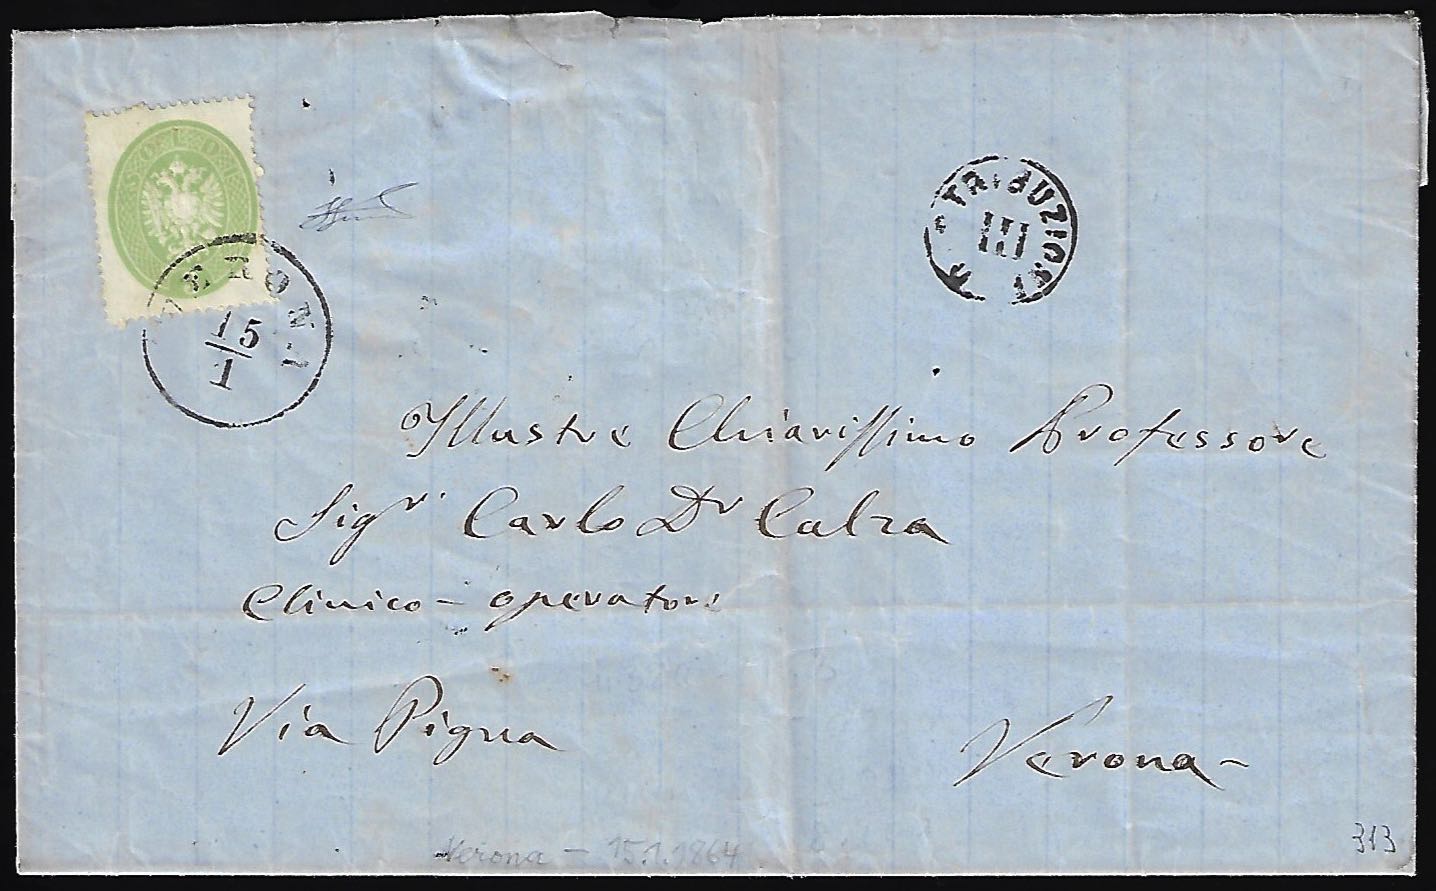 SOLDI
VERONA
15
1
DISTRIBUZIONE
III
Illustre Chiarissimo Professore
Sigr. Carlo Dr Calza
Clinico - operatore
Via Pigna
Verona -
Verona - 15.1.1864
313